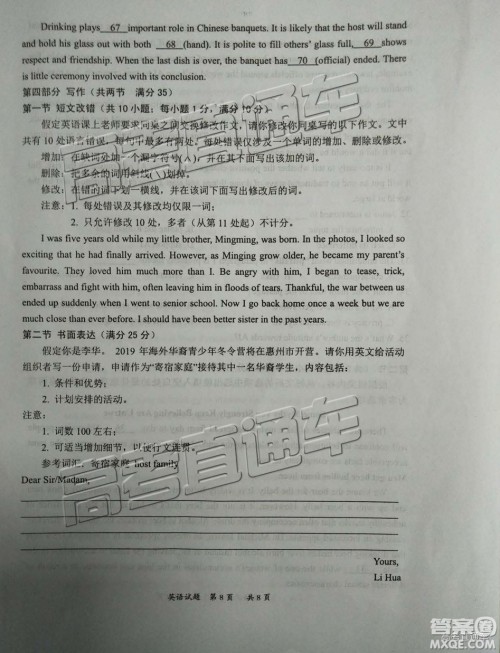 Drinking plays 67 important role in Chinese banquets. It is likely that the host will stand
and hold his glass out with both 68 (hand). It is polite to fill others' glass full, 69 shows
respect and friendship. When the last dish is over, the banquet has 70 (official) ended. There
is little ceremony involved with its conclusion.
第四部分 写作（共两节 满分 35）
第一节 短文改错（共 10 小题；每小题 1 分，满分 10 分）
假定英语课上老师要求同桌之间交换修改作文，请你修改你同桌写的以下作文。文中
共有 10 处语言错误，每句中最多有两处。每处错误仅涉及一个单词的增加、删除或修改。
增加：在缺词处加一个漏字符号(∧)，并在其下面写出该加的词。
删除：把多余的词用斜线(\)划掉。
修改：在错的词下划一横线，并在该词下面写出修改后的词。
注意：1. 每处错误及其修改均仅限一词；
2. 只允许修改 10 处，多者（从第 11 处起）不计分。
I was five years old while my little brother, Mingming, was born. In the photos, I looked so
exciting that he had finally arrived. However, as Mingming grow older, he became my parent's
favourite. They loved him much more than I. Be angry with him, I began to tease, trick,
embarrass and fight with him, often leaving him in floods of tears. Thankful, the war between us
ended up suddenly when I went to senior school. Now I go back home once a week but we are
much close than ever before. I should have been better sister in the past years.
第二节 书面表达（满分 25 分）
假定你是李华。2019 年海外华裔青少年冬令营将在惠州市开营。请你用英文给活动
组织者写一份申请，申请作为“寄宿家庭”接待其中一名华裔学生，内容包括：
1. 条件和优势；
2. 计划安排的活动。
注意：
1. 词数 100 左右；
2. 可适当增加细节，以使行文连贯。
参考词汇：寄宿家庭 host family
Dear Sir/Madam,
Yours,
Li Hua
英语试题 第 8 页 共 8 页
高考直通车
高考直通车
答案圈